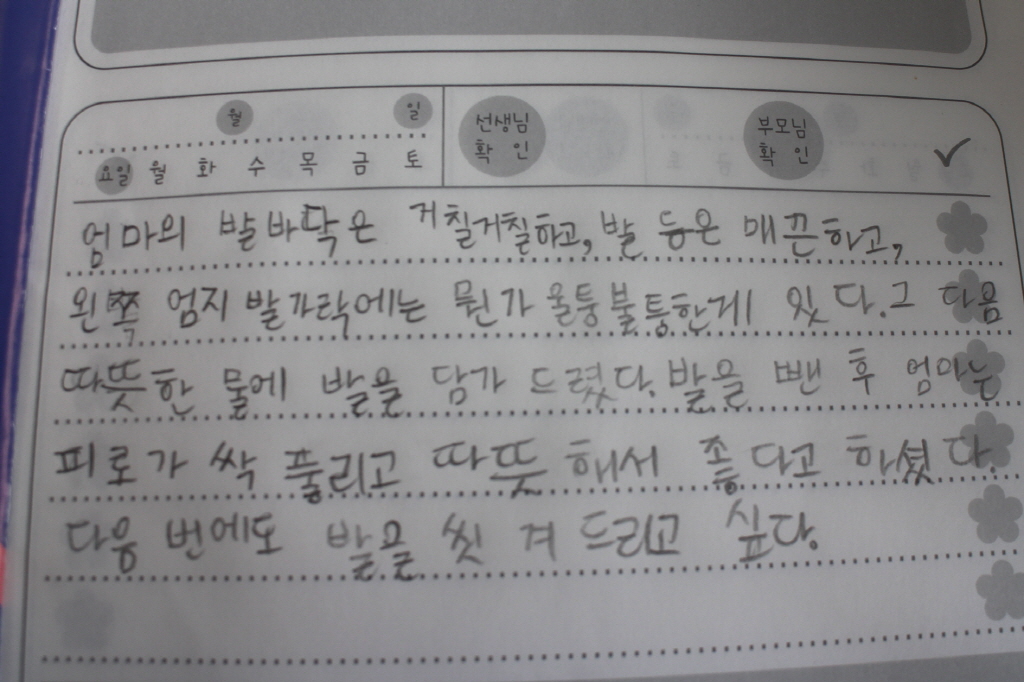 월 일 선생님 부모님
요일 월 화 수 목 금 토 확 인 확 인
엄마의 발바닥은 거칠거칠하고, 발 등은 매끈하고,
왼쪽 엄지 발가락에는 뭔가 울퉁불퉁한게 있다. 그 다음
따뜻한 물에 발을 담가 드렸다. 발을 뺀 후 엄마는
피로가 싹 풀리고 따뜻해서 좋다고 하셨다.
다음 번에도 발을 씻겨 드리고 싶다.